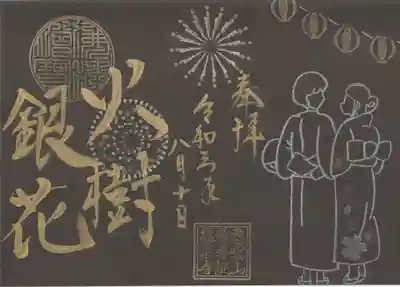 奉拝
令和三年
八月十日
火樹
銀花